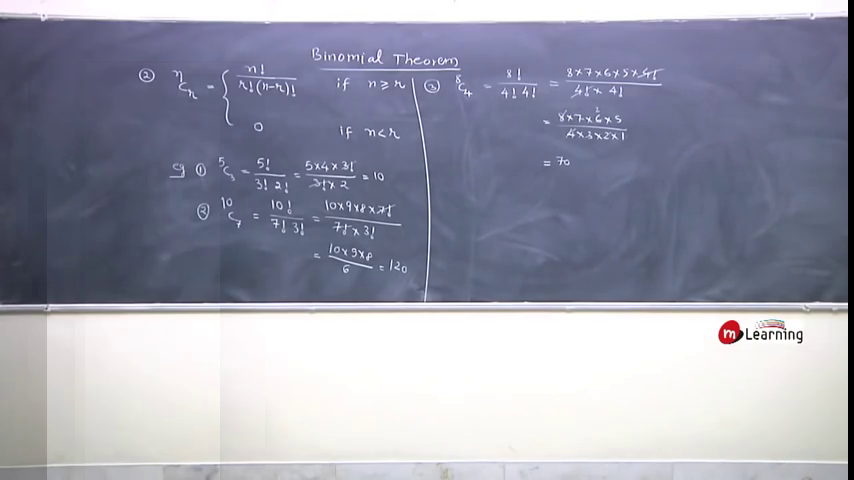 Binomial Theorem
② ⁿCᵣ = { n! / r!(n-r)! if n ≥ r
0 if n < r
eg ① ⁵C₃ = 5! / 3! 2! = 5×4×3! / 3!×2 = 10
② ¹⁰C₇ = 10! / 7! 3! = 10×9×8×7! / 7!×3!
= 10×9×8 / 6 = 120
③ ⁸C₄ = 8! / 4! 4! = 8×7×6×5×4! / 4!×4!
= 8×7×6×5 / 4×3×2×1
= 70
m Learning